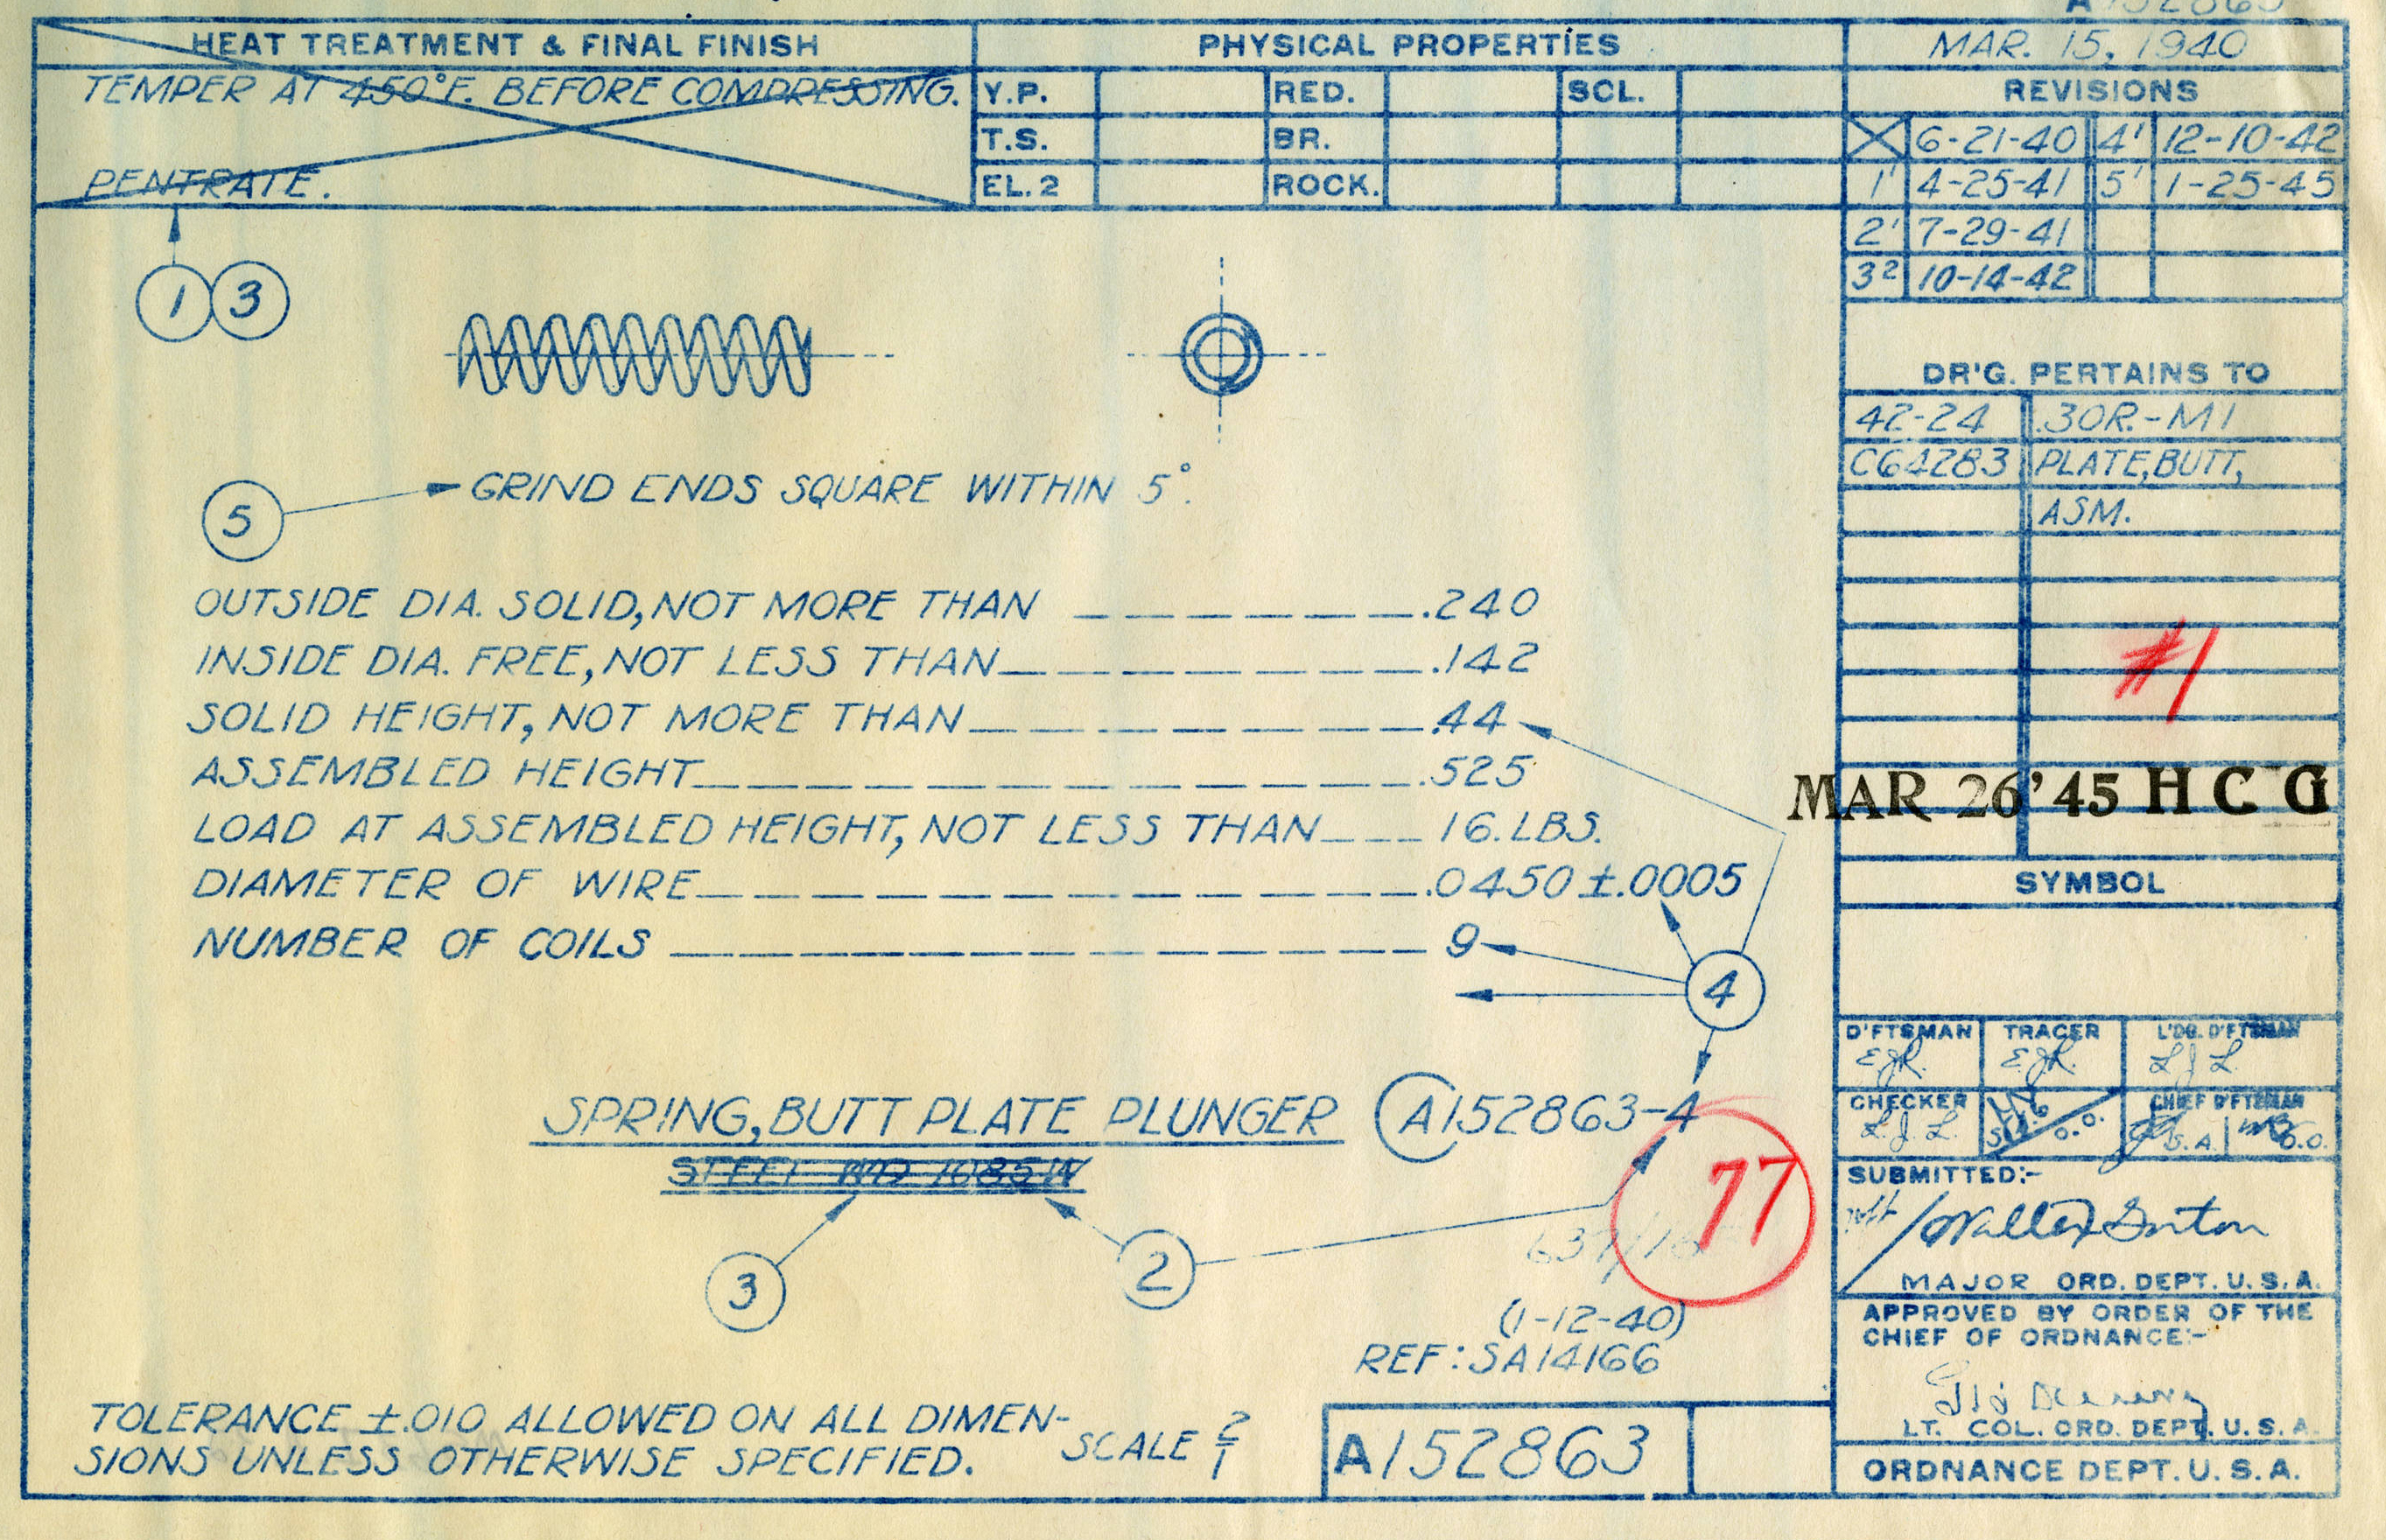 A152863
HEAT TREATMENT & FINAL FINISH
TEMPER AT 450°F. BEFORE COMPRESSING.
PENTRATE.
PHYSICAL PROPERTIES
Y.P. RED. SCL.
T.S. BR.
EL.2 ROCK.
MAR. 15, 1940
REVISIONS
6-21-40 4' 12-10-42
1' 4-25-41 5' 1-25-45
2' 7-29-41
3² 10-14-42
1 3
DR'G. PERTAINS TO
42-24 .30R.-M1
C64283 PLATE,BUTT,
ASM.
5 GRIND ENDS SQUARE WITHIN 5°.
OUTSIDE DIA. SOLID, NOT MORE THAN .240
INSIDE DIA. FREE, NOT LESS THAN .142
SOLID HEIGHT, NOT MORE THAN .44
ASSEMBLED HEIGHT .525
LOAD AT ASSEMBLED HEIGHT, NOT LESS THAN 16. LBS.
DIAMETER OF WIRE .0450 ±.0005
NUMBER OF COILS 9
4
#1
MAR 26 '45 H C G
SYMBOL
SPRING, BUTT PLATE PLUNGER A152863-4
STEEL WD 1085 N
3 2
77
(1-12-40)
REF: SA14166
TOLERANCE ±.010 ALLOWED ON ALL DIMEN-
SIONS UNLESS OTHERWISE SPECIFIED.
SCALE 2/1
A152863
D'FTSMAN TRACER L'DG. D'FTSMAN
E.J.R. E.J.R. L J L
CHECKER CHIEF D'FTSMAN
L. J. L. O.O. S.A. O.O.
SUBMITTED:-
MAJOR ORD. DEPT. U. S. A.
APPROVED BY ORDER OF THE
CHIEF OF ORDNANCE:-
LT. COL. ORD. DEPT. U. S. A.
ORDNANCE DEPT. U. S. A.